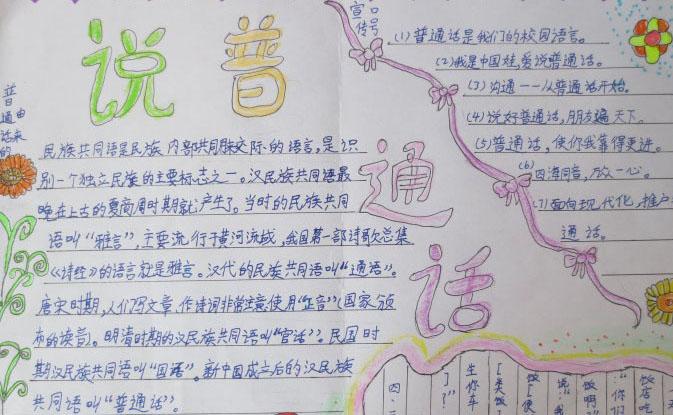 说普
通
话
普通话的由来
民族共同语是民族内部共同用来交际的语言,是识
别一个独立民族的主要标志之一。汉民族共同语最
晚在上古的夏商周时期就产生了。当时的民族共同
语叫“雅言”,主要流行于黄河流域,我国第一部诗歌总集
《诗经》的语言就是雅言。汉代的民族共同语叫“通语”。
唐宋时期,人们写文章、作诗词非常注意使用“正音”(国家颁
布的读音)。明清时期的汉民族共同语叫“官话”。民国时
期汉民族共同语叫“国语”。新中国成立后的汉民族
共同语叫“普通话”。
宣传口号
(1)普通话是我们的校园语言。
(2)我是中国娃,爱说普通话。
(3)沟通——从普通话开始。
(4)说好普通话,朋友遍天下。
(5)普通话,使你我靠得更近。
(6)四海同音,万众一心。
(7)面向现代化,推户
通话。
饭店吃
“你
饭啊?
说:“我
饭[便
[类饭
生你车
]?”
四、